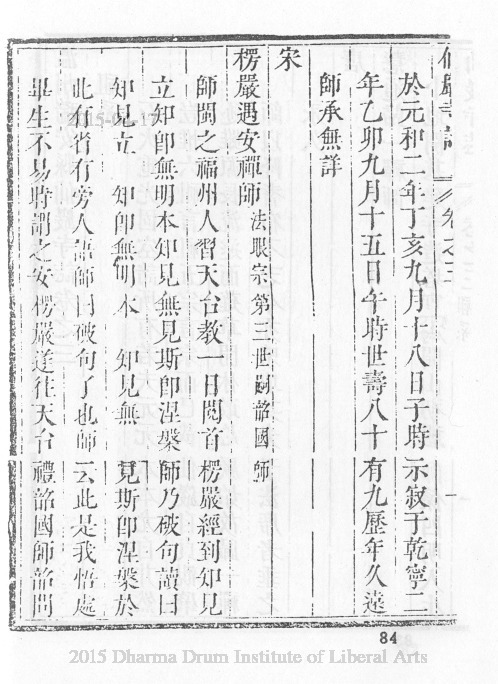 仙巖寺志 卷之三 一
於元和二年丁亥九月十八日子時示寂于乾寧二
年乙卯九月十五日午時世壽八十有九歷年久遠
師承無詳
宋
楞嚴遇安禪師 法眼宗第三世嗣韶國師
師閩之福州人習天台教一日閱首楞嚴經到知見
立知卽無明本知見無見斯卽涅槃師乃破句讀曰
知見立 知卽無明本 知見無 見斯卽涅槃於
此有省有旁人語師曰破句了也師云此是我悟處
畢生不易時謂之安楞嚴遂往天台禮韶國師韶問
84
2015 Dharma Drum Institute of Liberal Arts